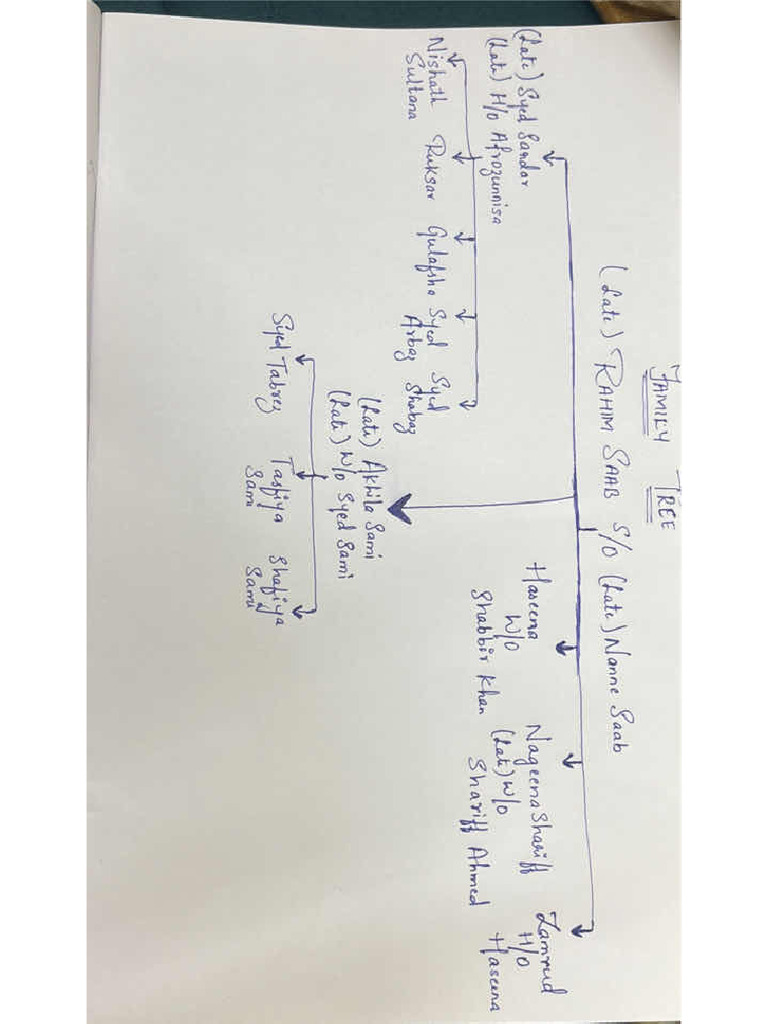 FAMILY TREE
(Late) RAHIM SAAB S/O (Late) Nanne Saab
(Late) Syed Sardar
(Late) H/O Afrozunnisa
Nishath
Sultana
Ruksar
Gulafsha
Syed
Arbaz
Syed
Shabaz
(Late) Akhila Sami
(Late) W/O Syed Sami
Syed Tabrez
Tasfiya
Sami
Shafiya
Sami
Haseena
W/O
Shabbir Khan
Nageena Shariff
(Late) W/O
Shariff Ahmed
Zamrud
H/O
Haseena